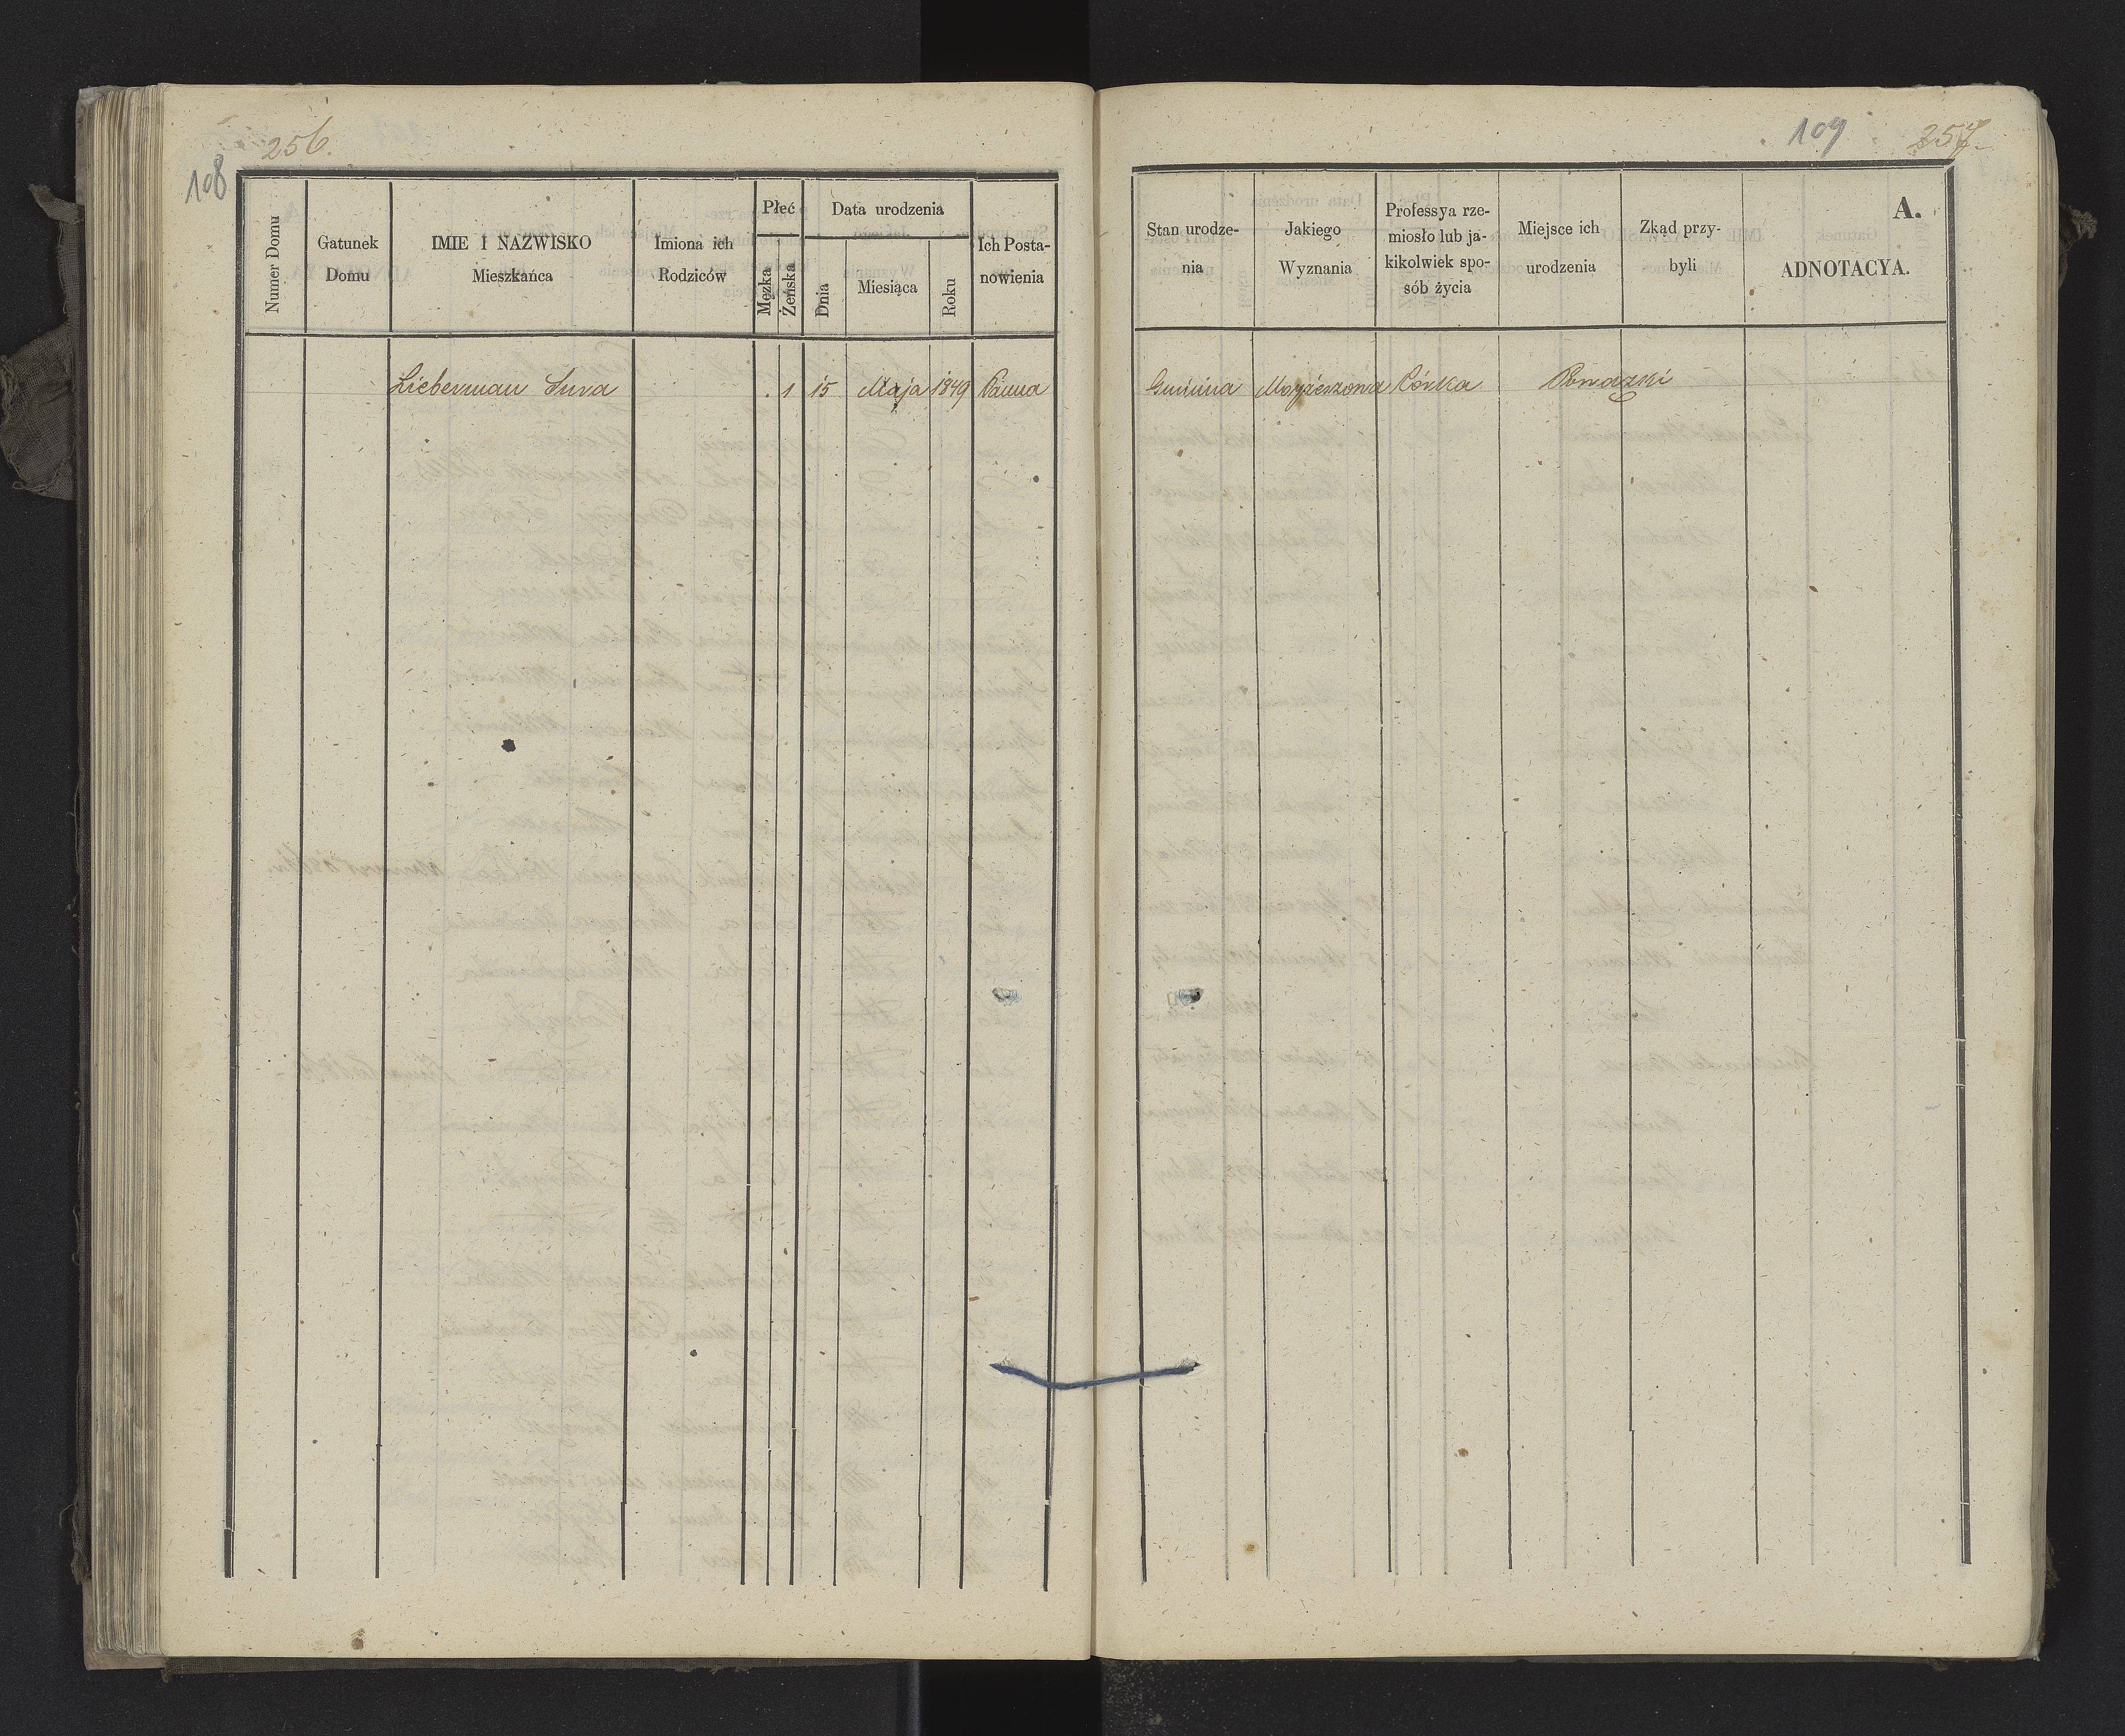 108
256.
Numer Domu
Gatunek
Domu
IMIE I NAZWISKO
Mieszkańca
Imiona ich
Rodziców
Płeć
Męzka
Żeńska
Data urodzenia
Dnia
Miesiąca
Roku
Ich Posta-
nowienia
Lieberman Sura . 1 15 Maja 1849 Panna
109 257.
Stan urodze-
nia
Jakiego
Wyznania
Professya rze-
miosło lub ja-
kikolwiek spo-
sób życia
Miejsce ich
urodzenia
Zkąd przy-
byli
A.
ADNOTACYA.
Gminna Mojżeszowa Córka Powązki